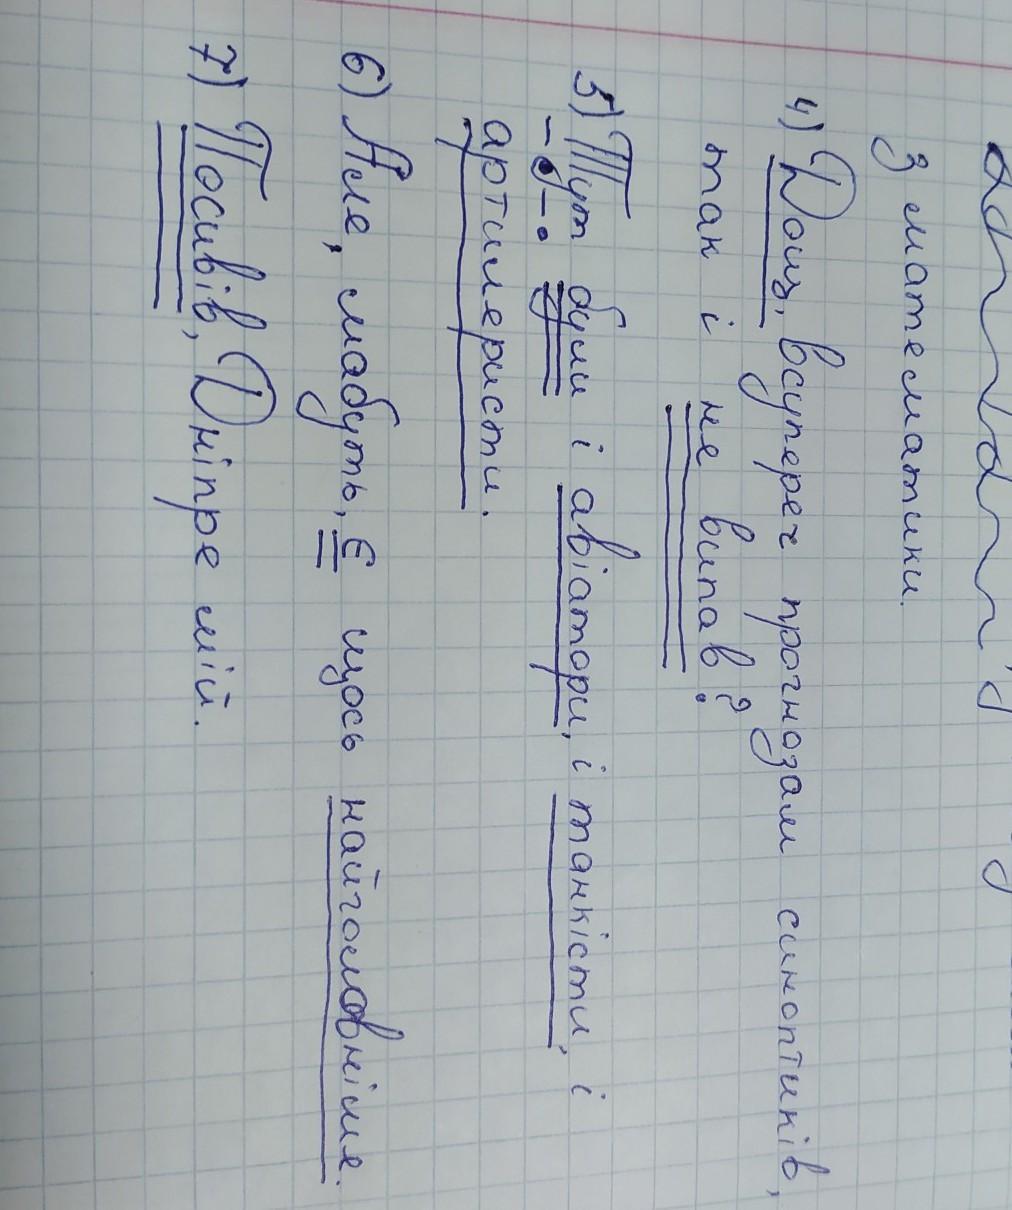 з математики.
4) Дощ, всупереч прогнозам синоптиків,
так і не випав?
5) Тут були і авіатори, і танкісти, і
артилеристи.
6) Але, мабуть, є щось найголовніше.
7) Посивів, Дніпре мій.